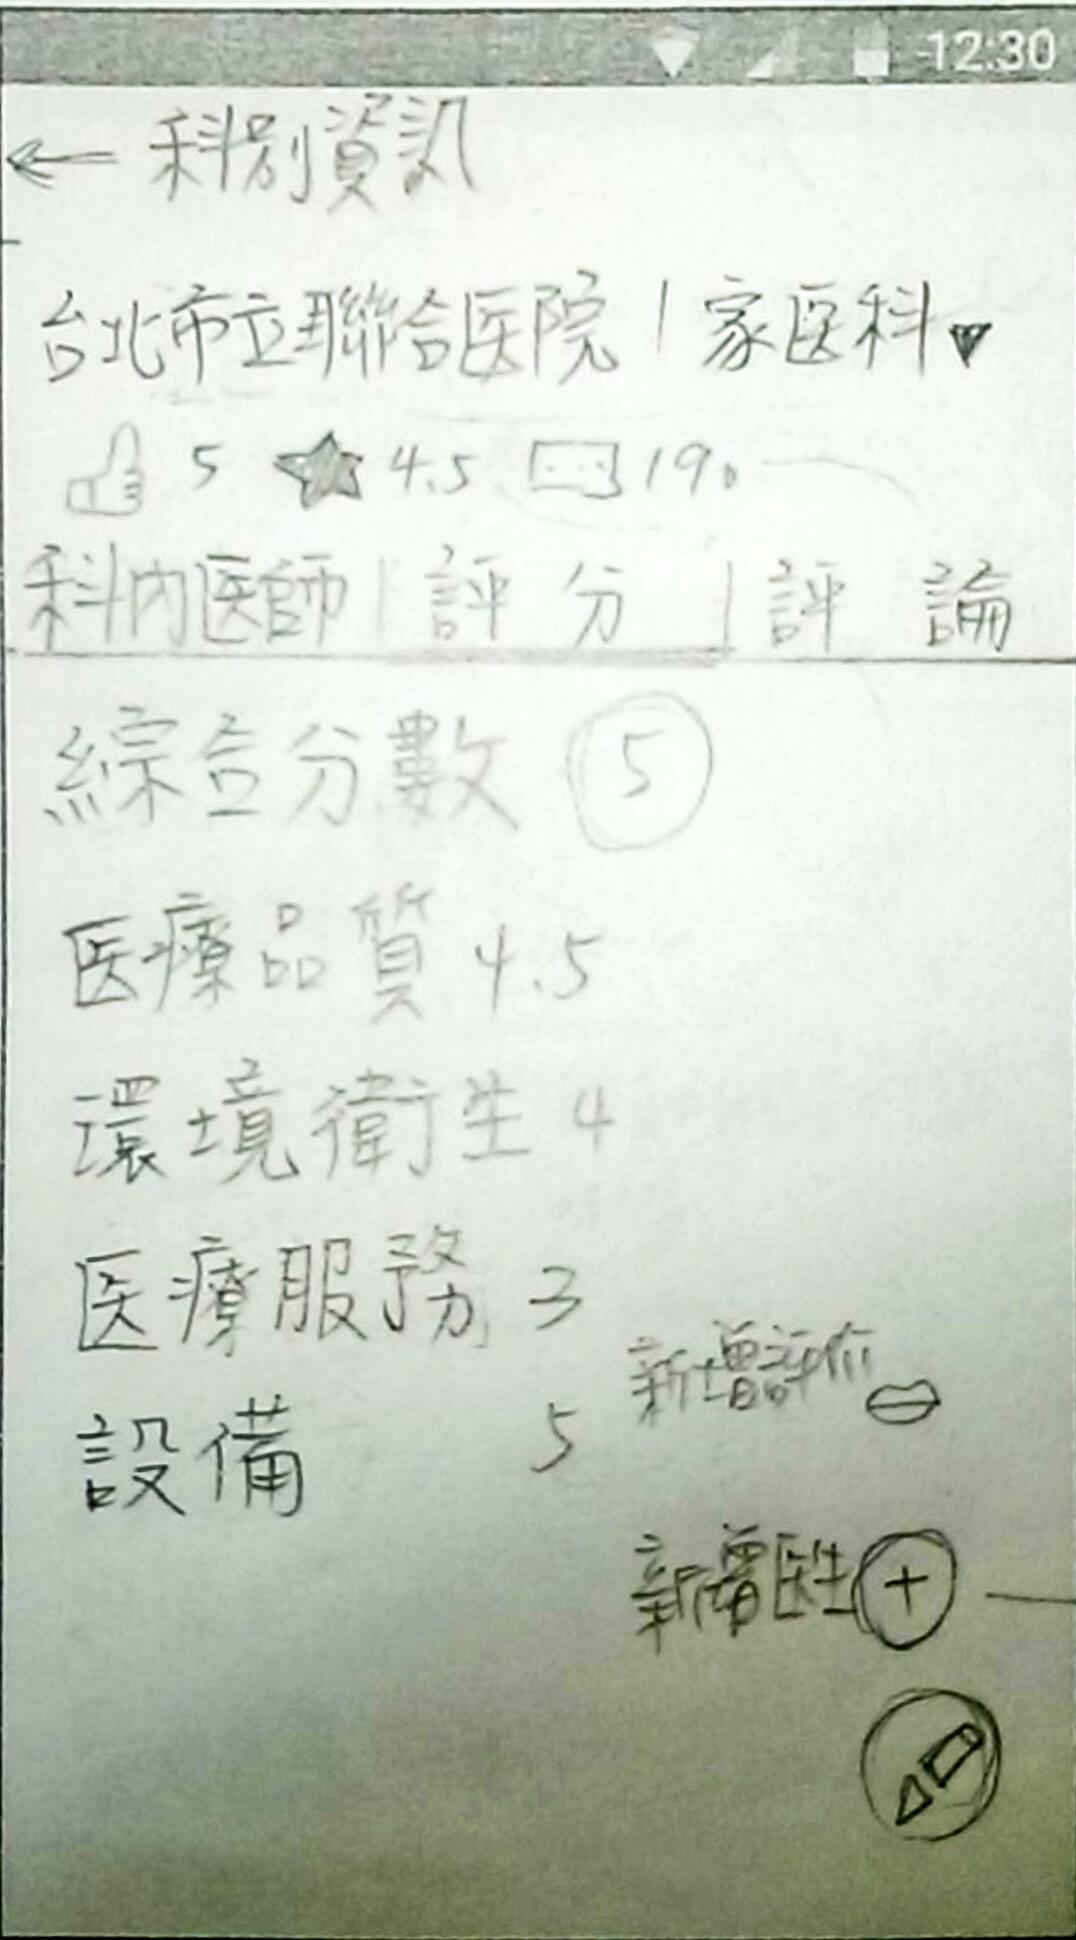 12:30
← 科別資訊
台北市立聯合医院 | 家医科
5 4.5 190
科內医師 | 評分 | 評論
綜合分數 5
医療品質 4.5
環境衛生 4
医療服務 3
新增評價
設備 5
新增医生 +